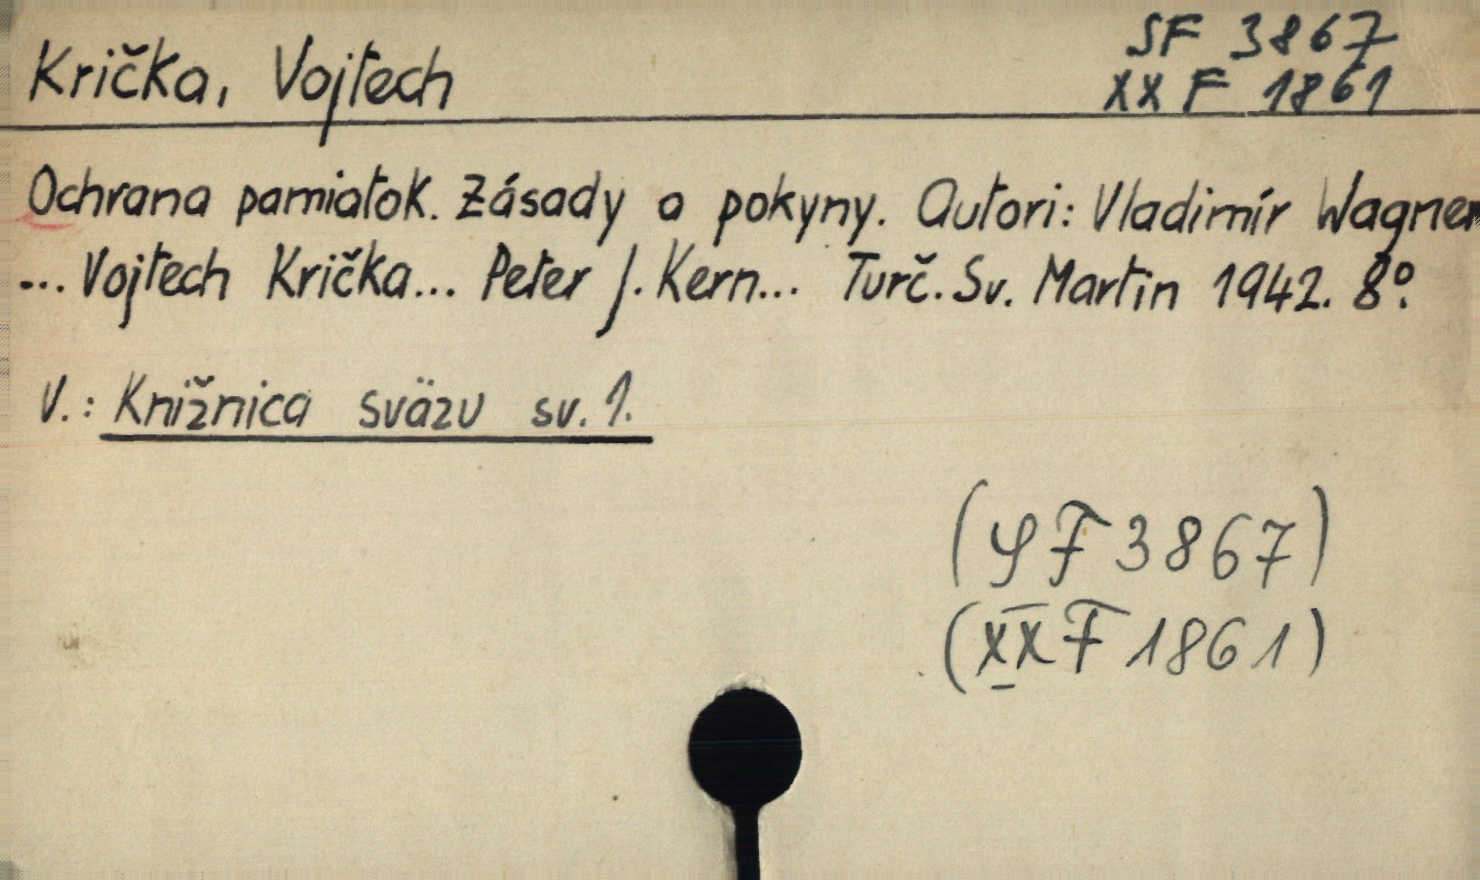 Krička, Vojtech
SF 3867
XX F 1861
Ochrana pamiatok. Zásady a pokyny. Autori: Vladimír Wagner
... Vojtech Krička... Peter J. Kern... Turč. Sv. Martin 1942. 8°.
V.: Knižnica sväzu sv. 1.
(SF 3867)
(XX F 1861)